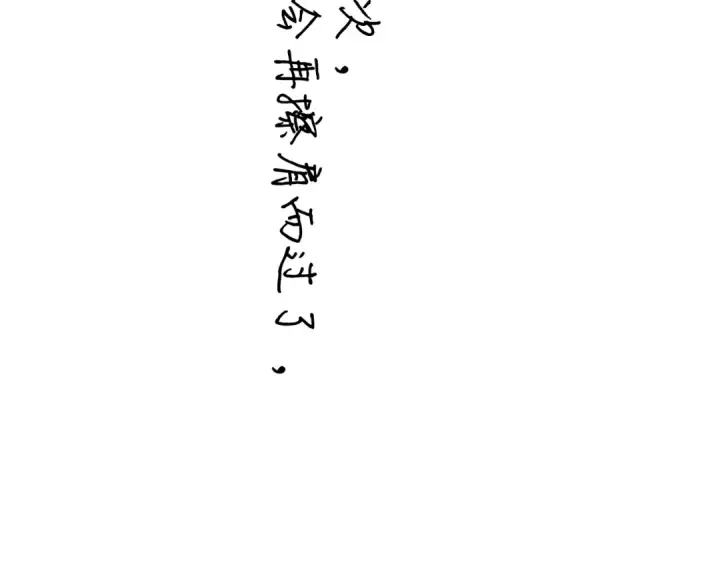 次，
会再擦肩而过了，